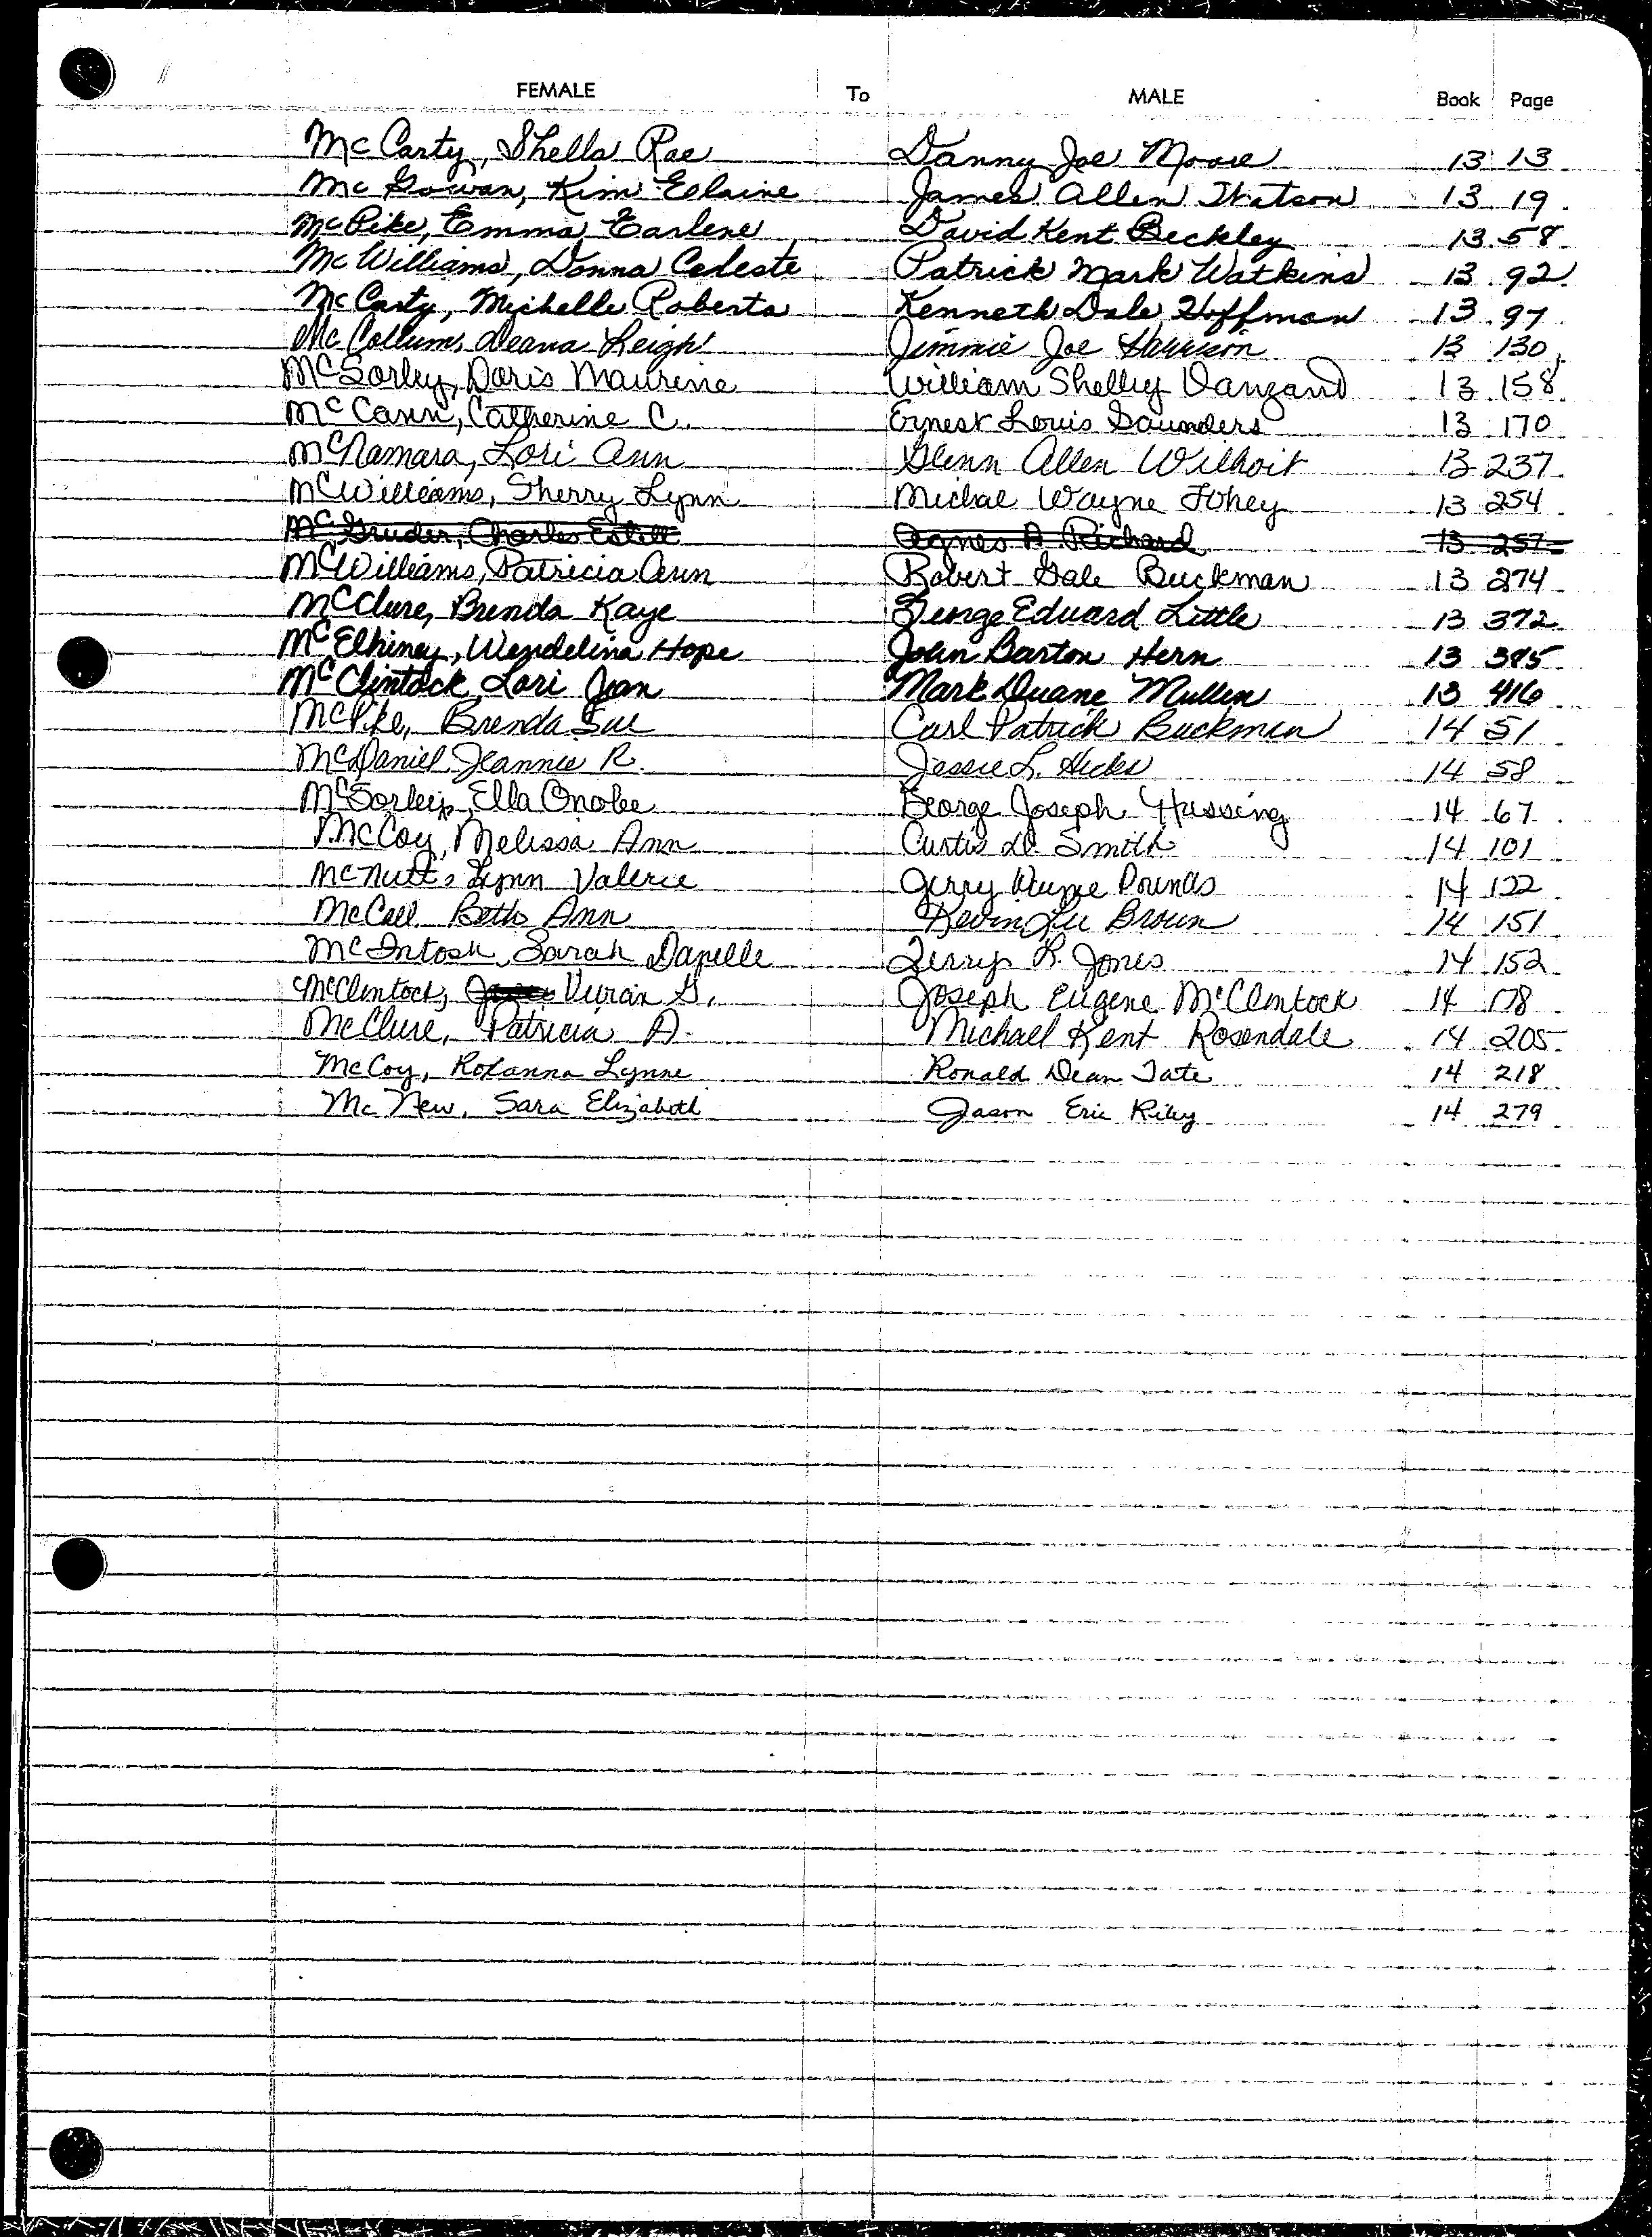 FEMALE To MALE Book Page
McCarty, Shella Rae Danny Joe Moore 13 13
McGowan, Kim Elaine James Allen Watson 13 19
McPike, Emma Earlene David Kent Beckley 13 58
McWilliams, Donna Celeste Patrick Mark Watkins 13 92
McCarty, Michelle Roberta Kenneth Dale Hoffman 13 97
McCollum, Deana Leigh Jimmie Joe Harrison 13 130
McSorley, Doris Maurine William Shelley Vanzand 13 158
McCann, Catherine C. Ernest Louis Saunders 13 170
McNamara, Lori Ann Glenn Allen Wilhoit 13 237
McWilliams, Sherry Lynn Michae Wayne Fohey 13 254
McGruder, Charles Estell Agnes A Richard 13 257
McWilliams, Patricia Ann Robert Gale Buckman 13 274
McClure, Brenda Kaye George Edward Little 13 372
McElhiney, Wendelina Hope John Barton Hern 13 385
McClintock, Lori Jean Mark Duane Mullen 13 416
McPike, Brenda Sue Carl Patrick Buckman 14 51
McDaniel, Jeannie R. Jessie L. Hicks 14 58
McSorley, Ella Onolee George Joseph Hussing 14 67
McCoy, Melissa Ann Curtis D. Smith 14 101
McNutt, Lynn Valerie Jerry Wayne Pounds 14 122
McCall, Beth Ann Kevin Lee Brown 14 151
McIntosh, Sarah Danelle Terry R. Jones 14 152
McClintock, Vivian G. Joseph Eugene McClintock 14 178
McClure, Patricia A. Michael Kent Rosendale 14 205
McCoy, Roxanna Lynne Ronald Dean Tate 14 218
McNew, Sara Elizabeth Jason Eric Riley 14 279